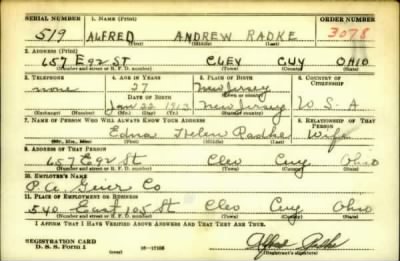 SERIAL NUMBER 1. NAME (Print) ORDER NUMBER
519 ALFRED ANDREW RADKE 3078
(First) (Middle) (Last)
2. ADDRESS (Print)
657 E 92 ST CLEV CUY OHIO
(Number and street or R. F. D. number) (Town) (County) (State)
3. TELEPHONE 4. AGE IN YEARS 5. PLACE OF BIRTH 6. COUNTRY OF CITIZENSHIP
none 27 New Jersey
DATE OF BIRTH (Town or county)
Jan 22 1913 New Jersey U S A
(Exchange) (Number) (Mo.) (Day) (Yr.) (State or country)
7. NAME OF PERSON WHO WILL ALWAYS KNOW YOUR ADDRESS 8. RELATIONSHIP OF THAT PERSON
Edna Helen Radke Wife
(Mr., Mrs., Miss) (First) (Middle) (Last)
9. ADDRESS OF THAT PERSON
657 E 92 St Clev Cuy Ohio
(Number and street or R. F. D. number) (Town) (County) (State)
10. EMPLOYER'S NAME
P. A. Geier Co
11. PLACE OF EMPLOYMENT OR BUSINESS
540 East 105 St Clev Cuy Ohio
(Number and street or R. F. D. number) (Town) (County) (State)
I AFFIRM THAT I HAVE VERIFIED ABOVE ANSWERS AND THAT THEY ARE TRUE.
REGISTRATION CARD
D. S. S. Form 1 Alfred Radke